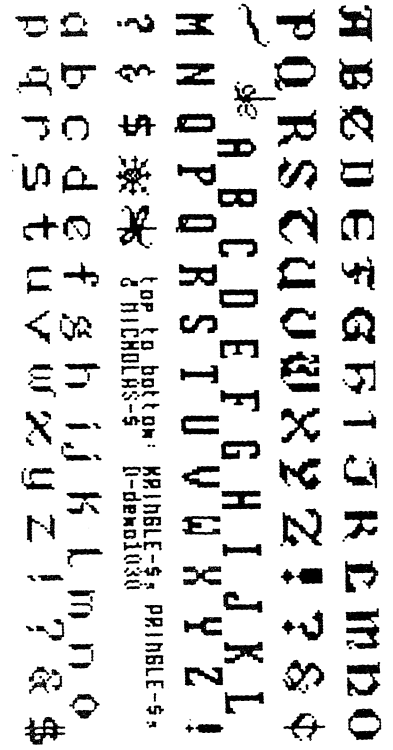 A B C D E F G H I J K L M N O
P Q R S T U V W X Y Z ! ? & ¢
A B C D E F G H I J K L
M N O P Q R S T U V W X Y Z !
? & $ top to bottom: KRINGLE-$, PRINGLE-$,
& NICHOLAS-$
a b c d e f g h i j k l m n o
p q r s t u v w x y z ! ? & $